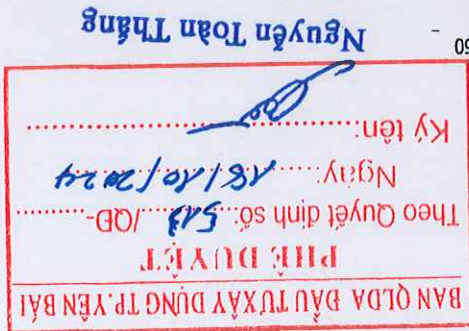 BAN QLDA ĐẦU TƯ XÂY DỰNG TP.YÊN BÁI
PHÊ DUYỆT
Theo Quyết định số: 513 /QĐ-
Ngày: 18/10/2024
Ký tên:
Nguyễn Toàn Thắng